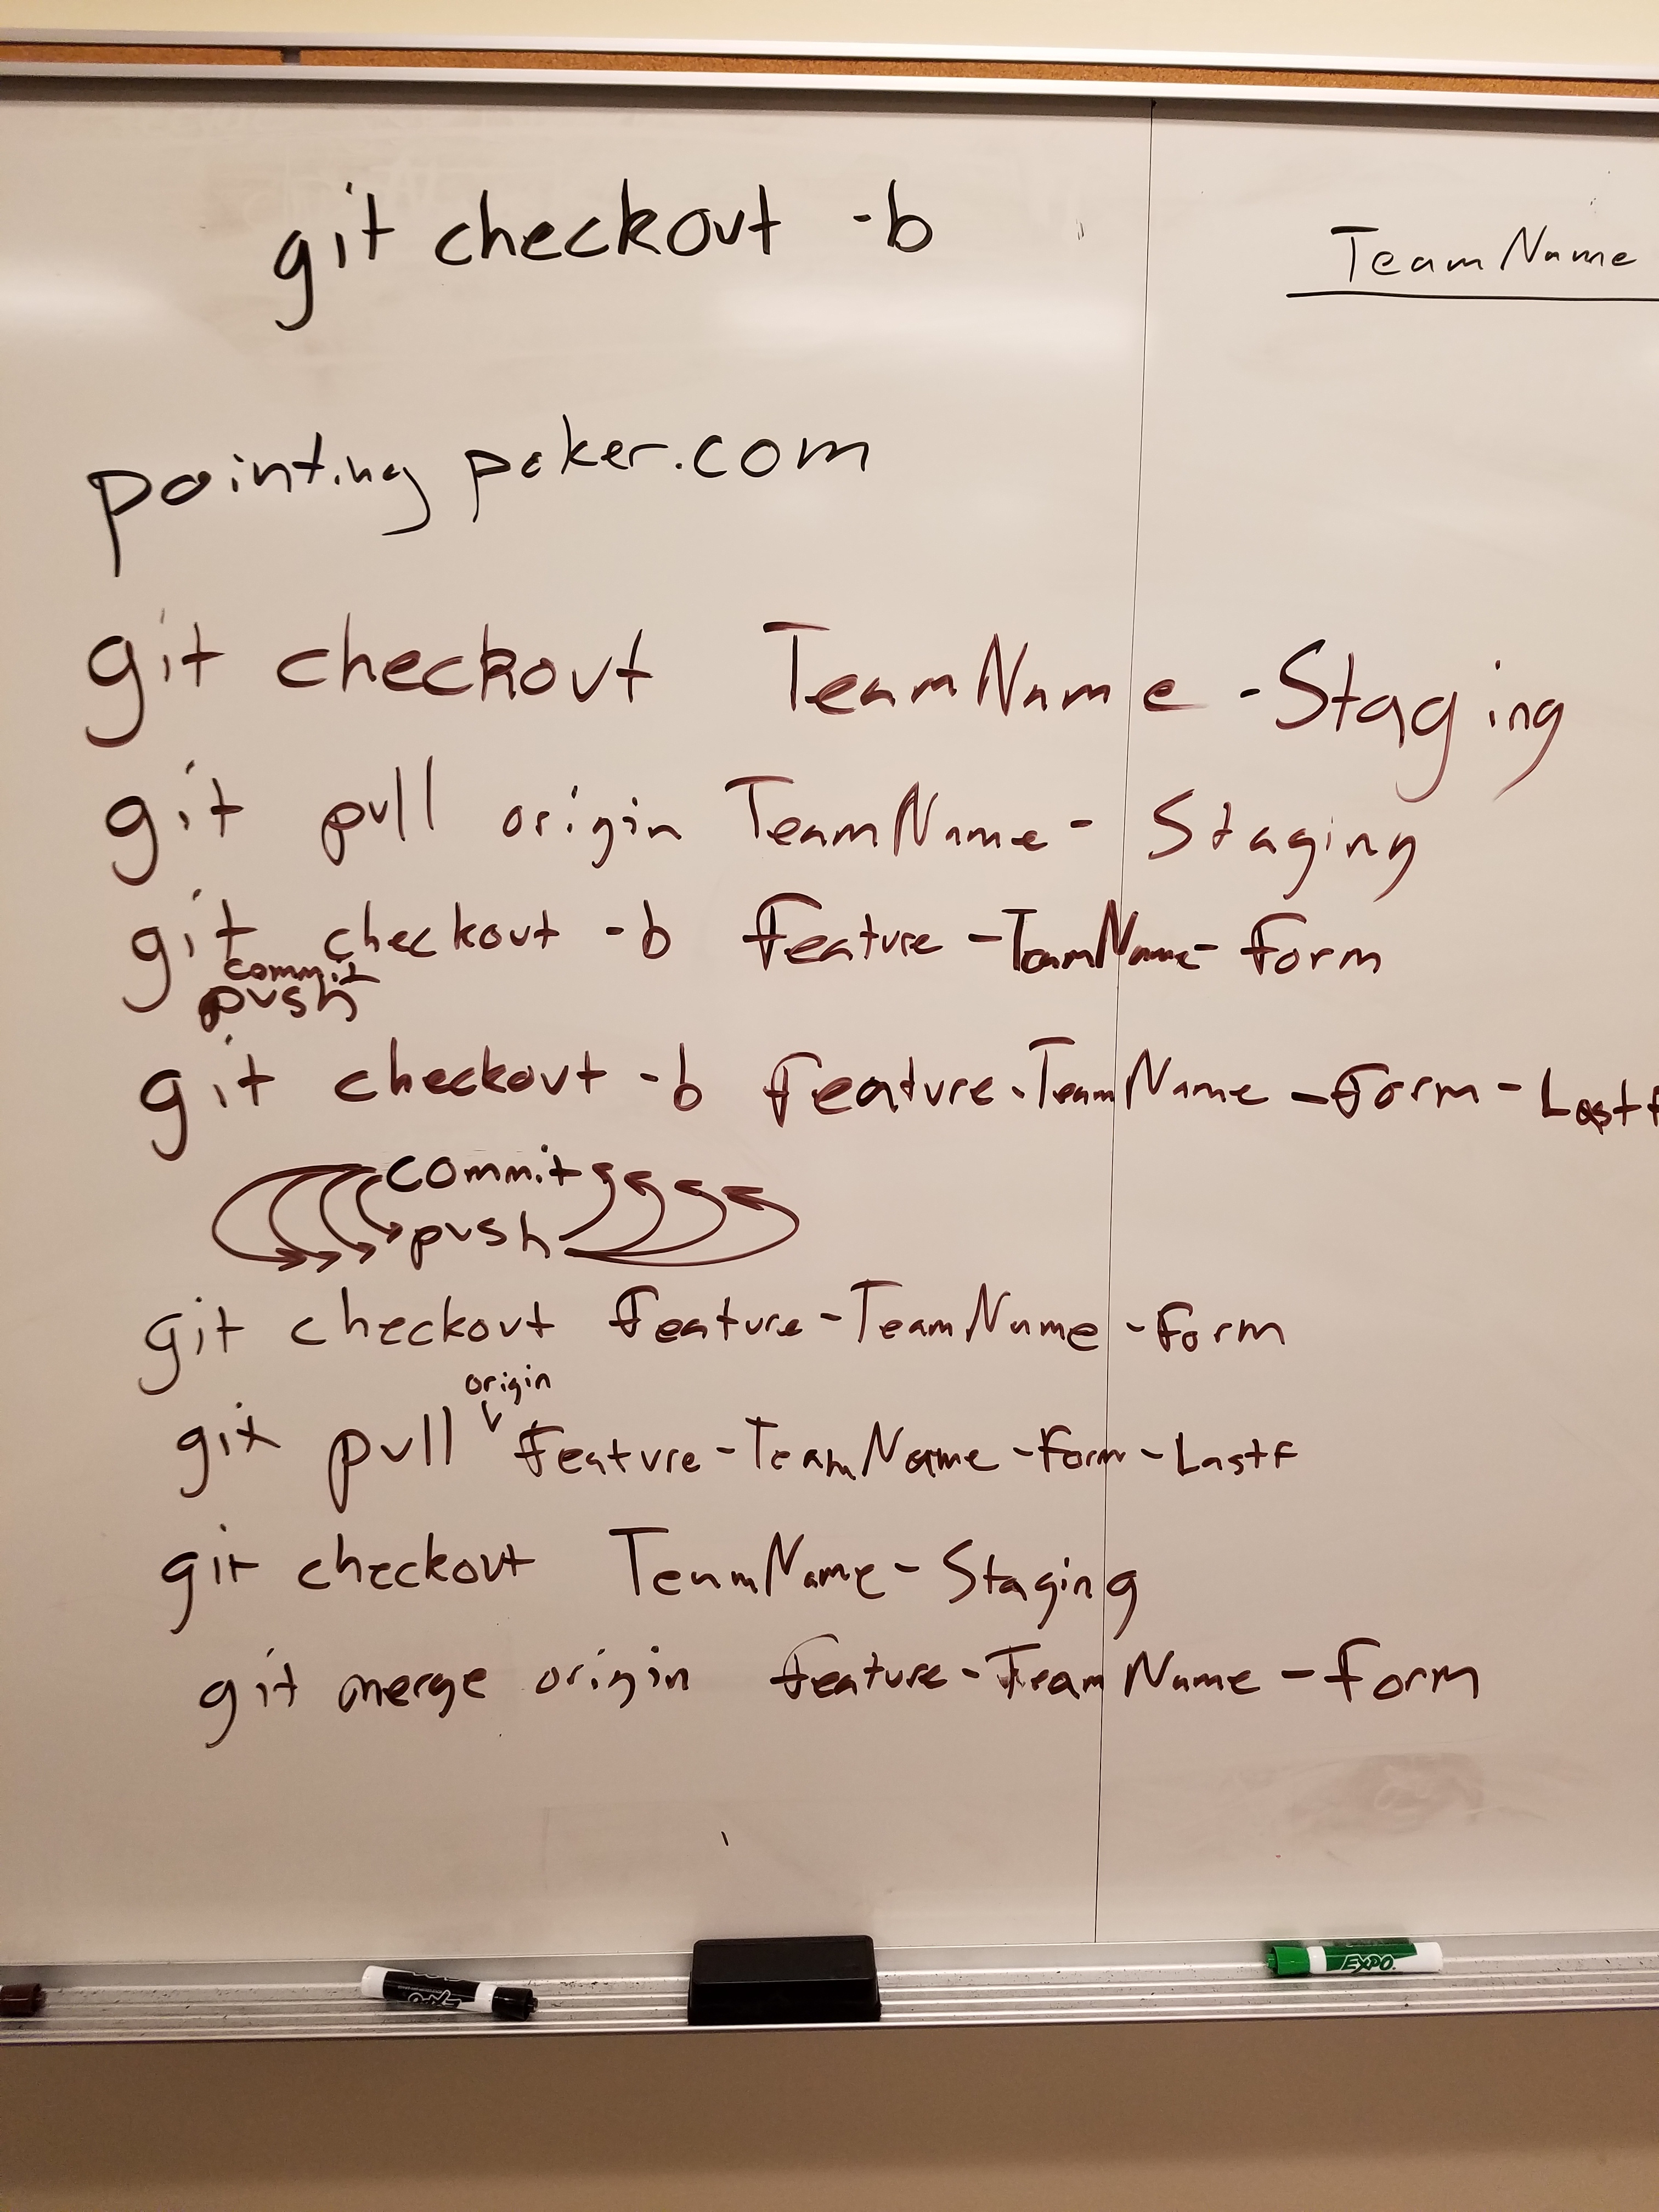 git checkout -b
TeamName
pointing poker.com
git checkout TeamName-Staging
git pull origin TeamName-Staging
git checkout -b feature-TeamName-form
commit
push
git checkout -b feature-TeamName-form-Lastf
commit
push
git checkout feature-TeamName-form
origin
git pull feature-TeamName-form-Lastf
git checkout TeamName-Staging
git merge origin feature-TeamName-form
EXPO
EXPO